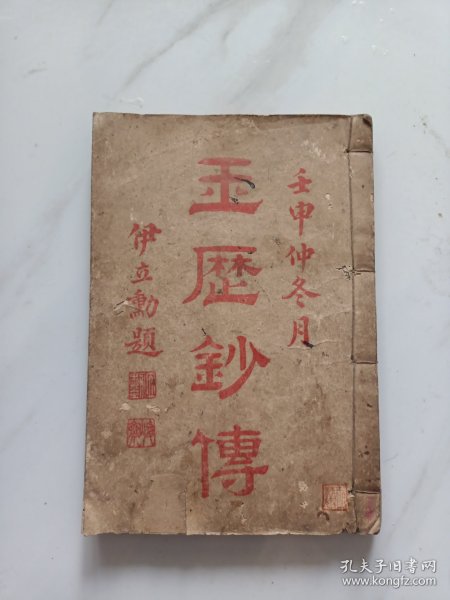 壬申仲冬月
玉歴鈔傳
伊立勳題
孔夫子旧书网
www.kongfz.com